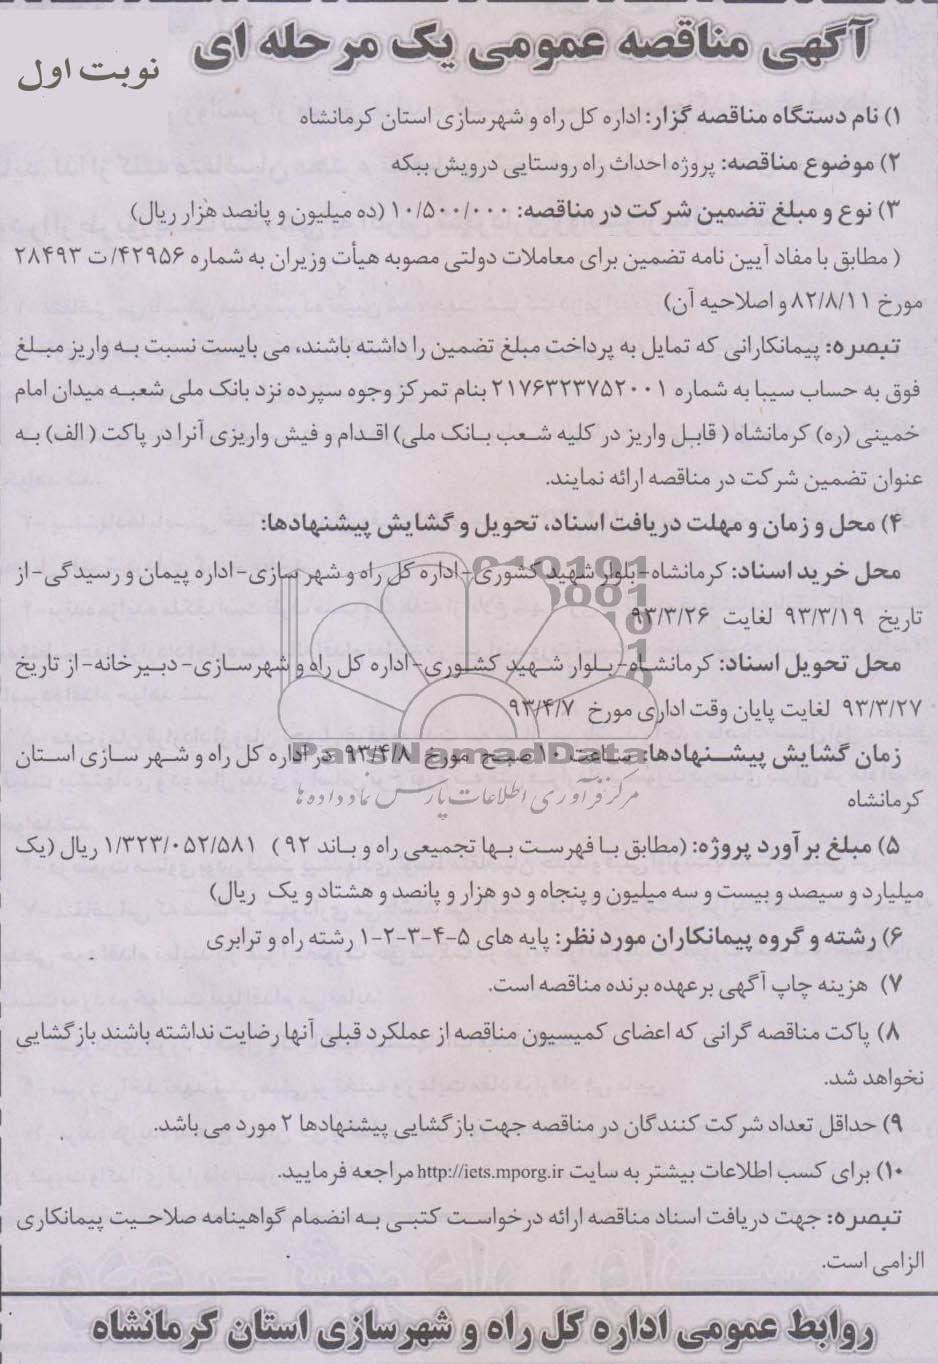 آگهی مناقصه عمومی یک مرحله ای
نوبت اول
۱) نام دستگاه مناقصه گزار: اداره کل راه و شهرسازی استان کرمانشاه
۲) موضوع مناقصه: پروژه احداث راه روستایی درویش ببکه
۳) نوع و مبلغ تضمین شرکت در مناقصه: ۱۰/۵۰۰/۰۰۰ (ده میلیون و پانصد هزار ریال)
( مطابق با مفاد آیین نامه تضمین برای معاملات دولتی مصوبه هیأت وزیران به شماره ۴۲۹۵۶/ ت ۲۸۴۹۳
مورخ ۸۲/۸/۱۱ و اصلاحیه آن)
تبصره: پیمانکارانی که تمایل به پرداخت مبلغ تضمین را داشته باشند، می بایست نسبت به واریز مبلغ
فوق به حساب سیبا به شماره ۲۱۷۶۳۲۳۷۵۲۰۰۱ بنام تمرکز وجوه سپرده نزد بانک ملی شعبه میدان امام
خمینی (ره) کرمانشاه ( قابل واریز در کلیه شعب بانک ملی) اقدام و فیش واریزی آنرا در پاکت ( الف) به
عنوان تضمین شرکت در مناقصه ارائه نمایند.
۴) محل و زمان و مهلت دریافت اسناد، تحویل و گشایش پیشنهادها:
محل خرید اسناد: کرمانشاه-بلوار شهید کشوری-اداره کل راه و شهر سازی-اداره پیمان و رسیدگی-از
تاریخ ۹۳/۳/۱۹ لغایت ۹۳/۳/۲۶
محل تحویل اسناد: کرمانشاه-بلوار شهید کشوری-اداره کل راه و شهرسازی-دبیرخانه-از تاریخ
۹۳/۳/۲۷ لغایت پایان وقت اداری مورخ ۹۳/۴/۷
ParsNamadData
زمان گشایش پیشنهادها: ساعت ۱۰ صبح مورخ ۹۳/۴/۸ در اداره کل راه و شهر سازی استان
کرمانشاه
مرکز فرآوری اطلاعات پارس نماد داده ها
۵) مبلغ برآورد پروژه: (مطابق با فهرست بها تجمیعی راه و باند ۹۲ ) ۱/۳۲۳/۰۵۲/۵۸۱ ریال (یک
میلیارد و سیصد و بیست و سه میلیون و پنجاه و دو هزار و پانصد و هشتاد و یک ریال)
۶) رشته و گروه پیمانکاران مورد نظر: پایه های ۵-۴-۳-۲-۱ رشته راه و ترابری
۷) هزینه چاپ آگهی برعهده برنده مناقصه است.
۸) پاکت مناقصه گرانی که اعضای کمیسیون مناقصه از عملکرد قبلی آنها رضایت نداشته باشند بازگشایی
نخواهد شد.
۹) حداقل تعداد شرکت کنندگان در مناقصه جهت بازگشایی پیشنهادها ۲ مورد می باشد.
۱۰) برای کسب اطلاعات بیشتر به سایت http://iets.mporg.ir مراجعه فرمایید.
تبصره: جهت دریافت اسناد مناقصه ارائه درخواست کتبی به انضمام گواهینامه صلاحیت پیمانکاری
الزامی است.
روابط عمومی اداره کل راه و شهرسازی استان کرمانشاه